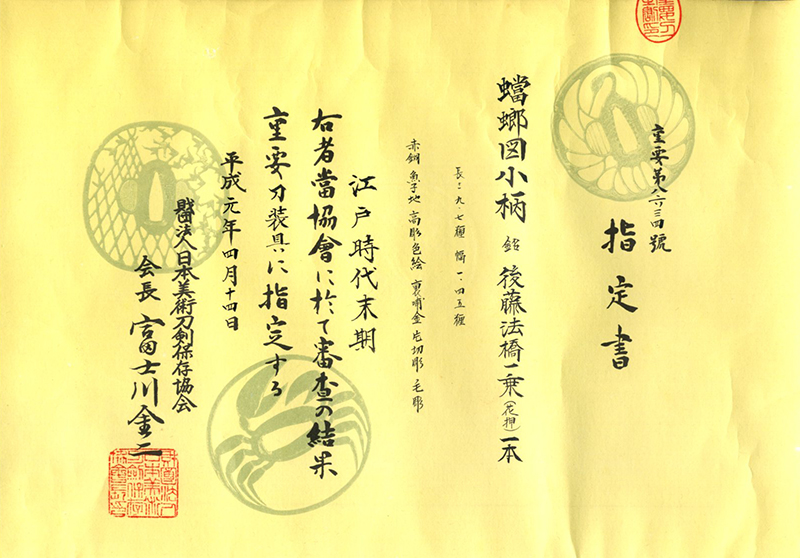 重要第八六三四號
指定書
蟷螂図小柄 銘 後藤法橋一乗(花押) 一本
長:九.七糎 幅一.四五糎
赤銅魚子地 高彫色絵 裏哺金片切彫 毛彫
江戸時代末期
右者當協會に於て審査の結果
重要刀装具に指定する
平成元年四月十四日
財団法人日本美術刀剣保存協会
会長 富士川金二